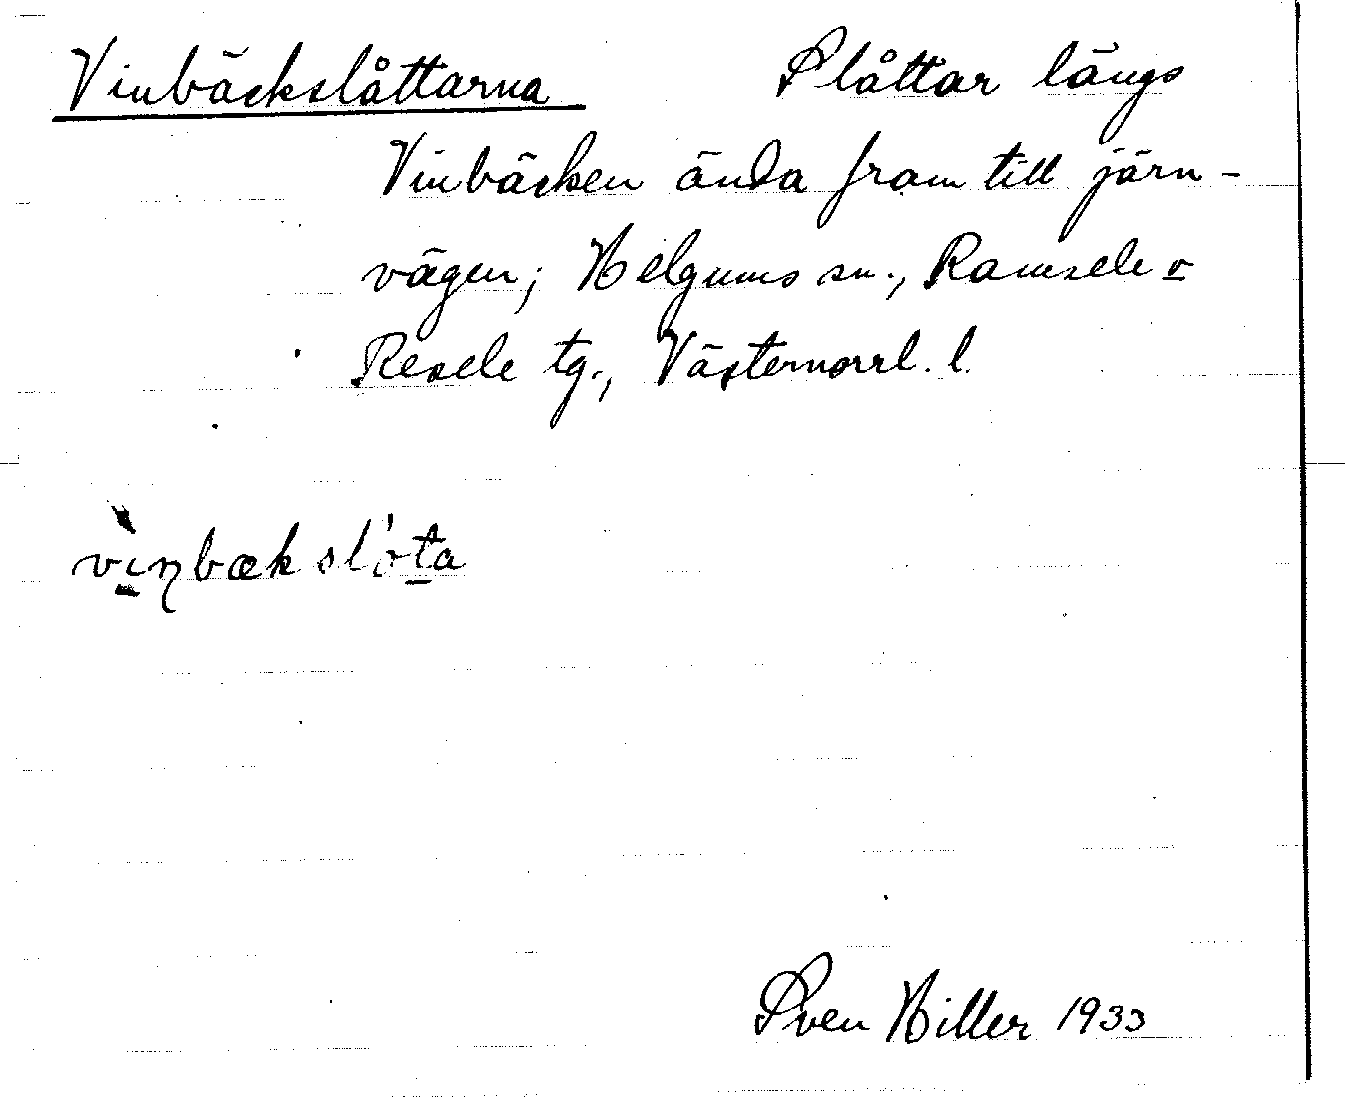 Vinbäckslåttarna Slåttar längs
Vinbäcken ända fram till järn-
vägen; Helgums sn., Ramsele o
Resele tg., Västernorrl. l.
Sven Hiller 1933